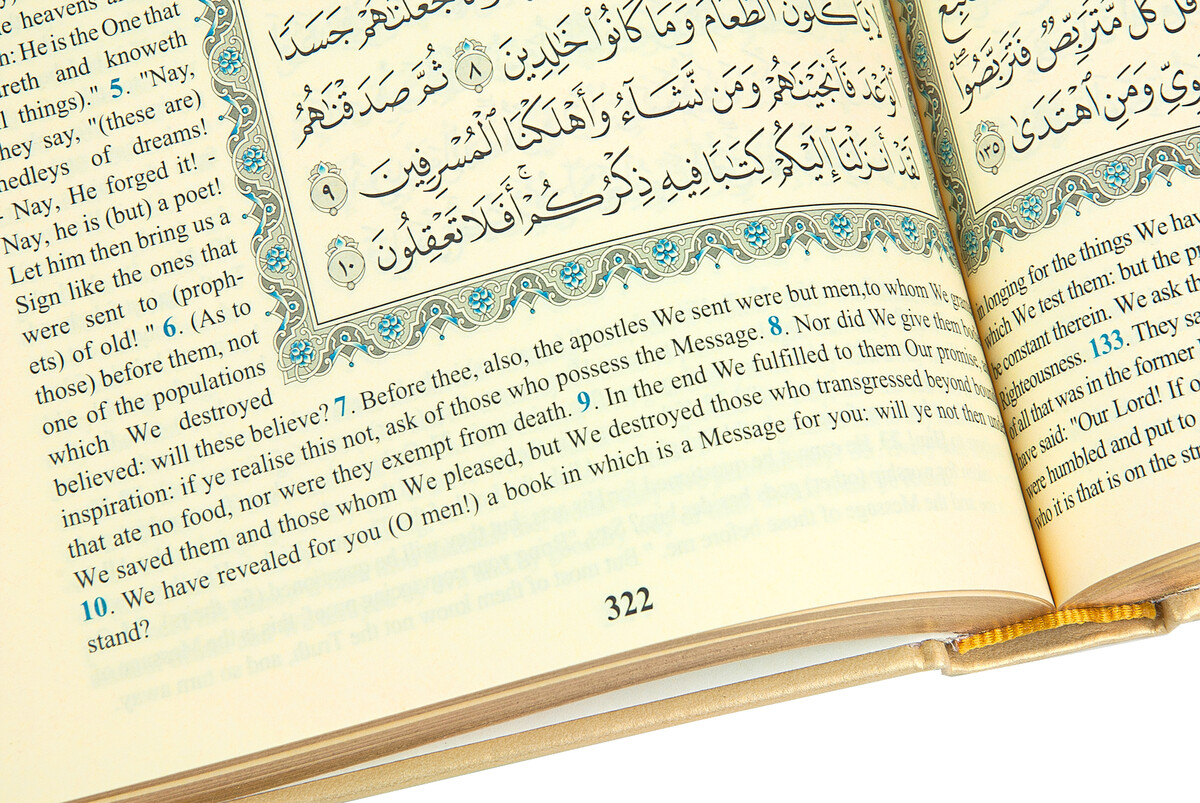 جَعَلْنَٰهُمْ جَسَدًا
لَّا يَأْكُلُونَ ٱلطَّعَامَ وَمَا كَانُوا۟ خَٰلِدِينَ ٨ ثُمَّ صَدَقْنَٰهُمُ
ٱلْوَعْدَ فَأَنجَيْنَٰهُمْ وَمَن نَّشَآءُ وَأَهْلَكْنَا ٱلْمُسْرِفِينَ ٩
لَقَدْ أَنزَلْنَآ إِلَيْكُمْ كِتَٰبًا فِيهِ ذِكْرُكُمْ ۖ أَفَلَا تَعْقِلُونَ ١٠
heavens
h: He is the One that
reth and knoweth
l things)." 5. "Nay,
hey say, "(these are)
nedleys of dreams!
- Nay, He forged it!
Nay, he is (but) a poet!
Let him then bring us a
Sign like the ones that
were sent to (proph-
ets) of old! " 6. (As to
those) before them, not
one of the populations
which We destroyed
believed: will these believe? 7. Before thee, also, the apostles We sent were but men,to whom We gran
inspiration: if ye realise this not, ask of those who possess the Message. 8. Nor did We give them bod
that ate no food, nor were they exempt from death. 9. In the end We fulfilled to them Our promise, a
We saved them and those whom We pleased, but We destroyed those who transgressed beyond boun
10. We have revealed for you (O men!) a book in which is a Message for you: will ye not then unde
stand?
322
قُلْ كُلٌّ مُّتَرَبِّصٌ فَتَرَبَّصُوا۟
وَمَنِ ٱهْتَدَىٰ ١٣٥
in longing for the things We hav
which We test them: but the pr
be constant therein. We ask th
Righteousness. 133. They sa
of all that was in the former
have said: "Our Lord! If o
were humbled and put to
who it is that is on the str